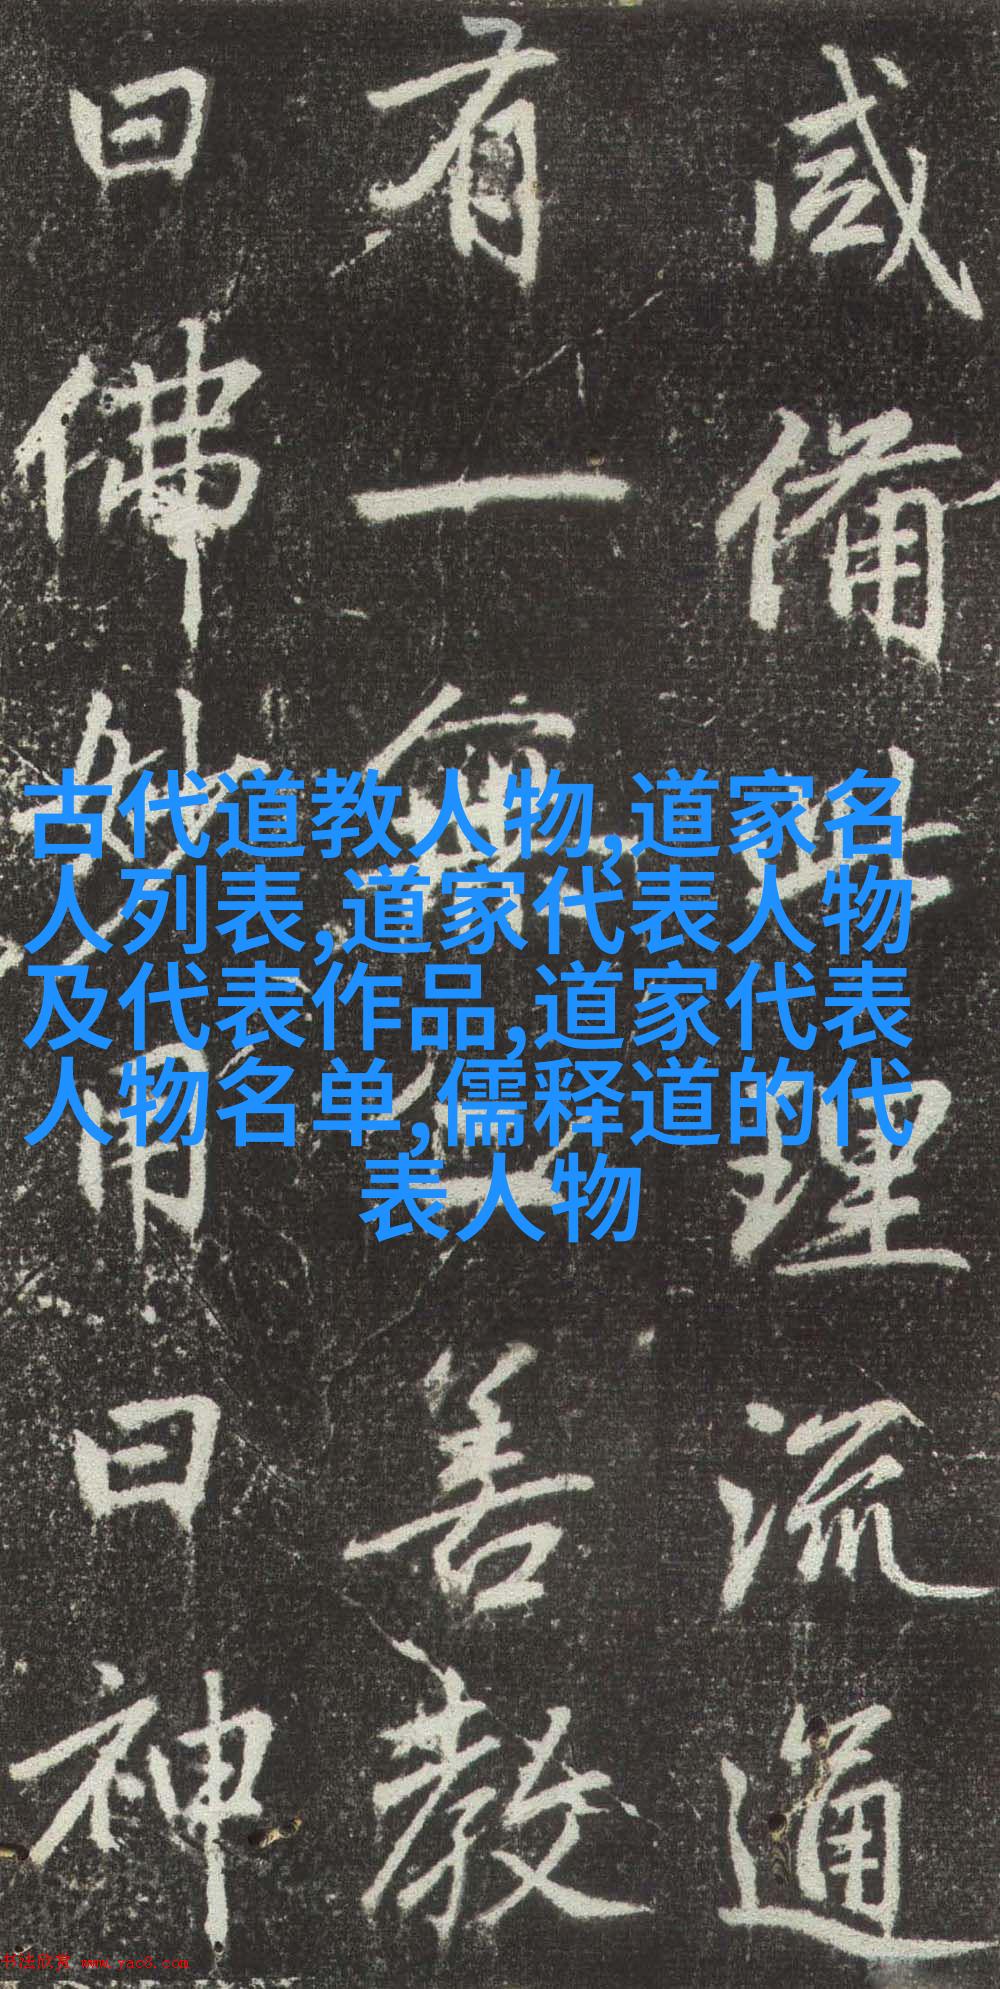 咸備此理流通
有一無二善教
曰佛妙用曰神
古代道教人物,道家名
人列表,道家代表人物
及代表作品,道家代表
人物名单,儒释道的代
表人物
书法欣赏 www.yac8.com